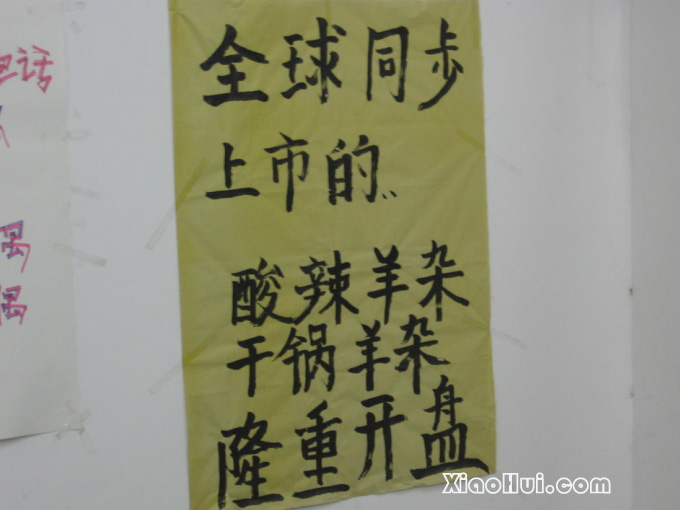 全球同步
上市的..
酸辣羊杂
干锅羊杂
隆重开盘
电话
XiaoHui.com